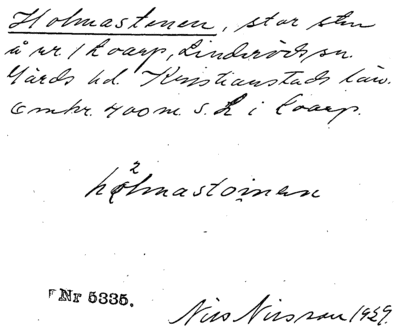 Holmastenen, stor sten
å nr 1 Loarp, Linderöds sn.
Gärds hd. Kristianstads län.
Omkr. 400 m. S. L i Loarp.
hòlmastoinen
Nr 5335.
Nils Nilsson 1929.